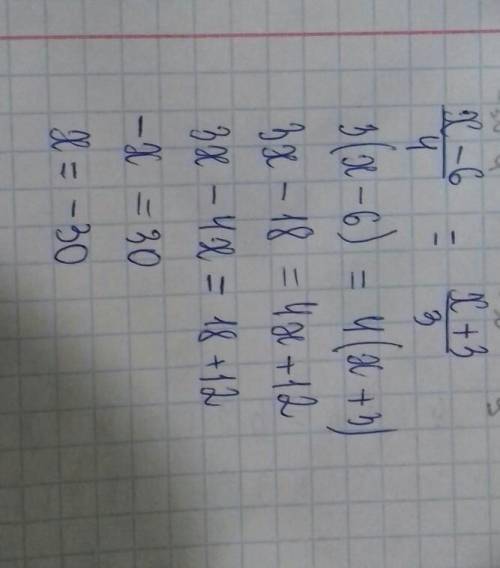 x-6/4 = x+3/3
3(x-6) = 4(x+3)
3x - 18 = 4x+12
3x - 4x = 18+12
-x = 30
x = -30